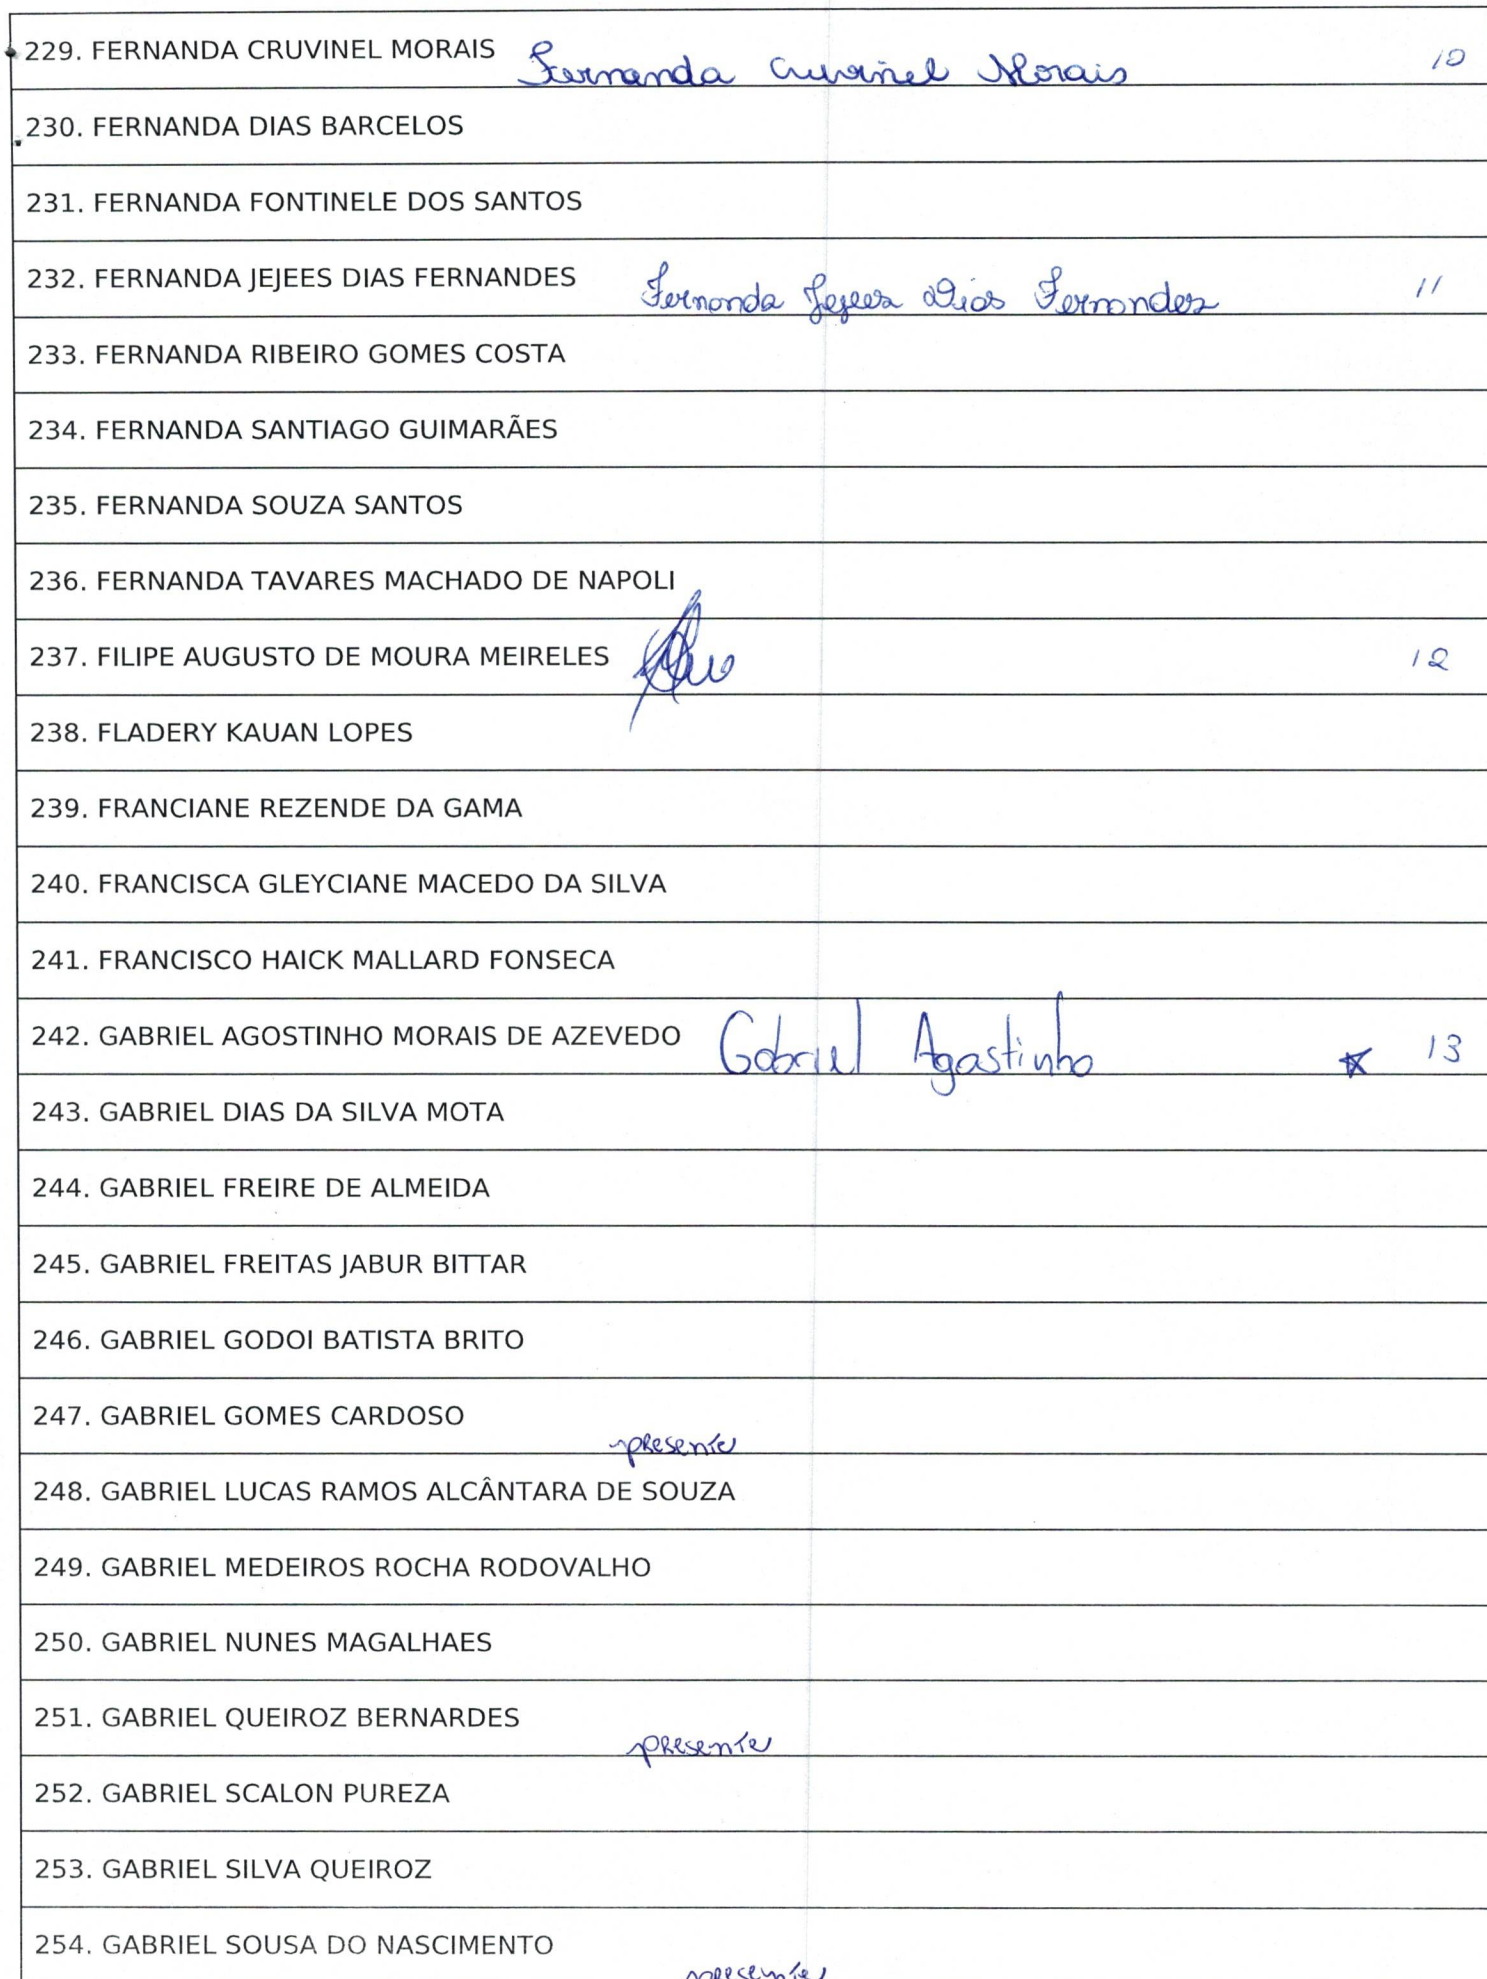 229. FERNANDA CRUVINEL MORAIS Fernanda Cruvinel Morais 10
230. FERNANDA DIAS BARCELOS
231. FERNANDA FONTINELE DOS SANTOS
232. FERNANDA JEJEES DIAS FERNANDES Fernanda Jejees Dias Fernandes 11
233. FERNANDA RIBEIRO GOMES COSTA
234. FERNANDA SANTIAGO GUIMARÃES
235. FERNANDA SOUZA SANTOS
236. FERNANDA TAVARES MACHADO DE NAPOLI
237. FILIPE AUGUSTO DE MOURA MEIRELES 12
238. FLADERY KAUAN LOPES
239. FRANCIANE REZENDE DA GAMA
240. FRANCISCA GLEYCIANE MACEDO DA SILVA
241. FRANCISCO HAICK MALLARD FONSECA
242. GABRIEL AGOSTINHO MORAIS DE AZEVEDO Gabriel Agostinho 13
243. GABRIEL DIAS DA SILVA MOTA
244. GABRIEL FREIRE DE ALMEIDA
245. GABRIEL FREITAS JABUR BITTAR
246. GABRIEL GODOI BATISTA BRITO
247. GABRIEL GOMES CARDOSO
presente
248. GABRIEL LUCAS RAMOS ALCÂNTARA DE SOUZA
249. GABRIEL MEDEIROS ROCHA RODOVALHO
250. GABRIEL NUNES MAGALHAES
251. GABRIEL QUEIROZ BERNARDES
presente
252. GABRIEL SCALON PUREZA
253. GABRIEL SILVA QUEIROZ
254. GABRIEL SOUSA DO NASCIMENTO
presente